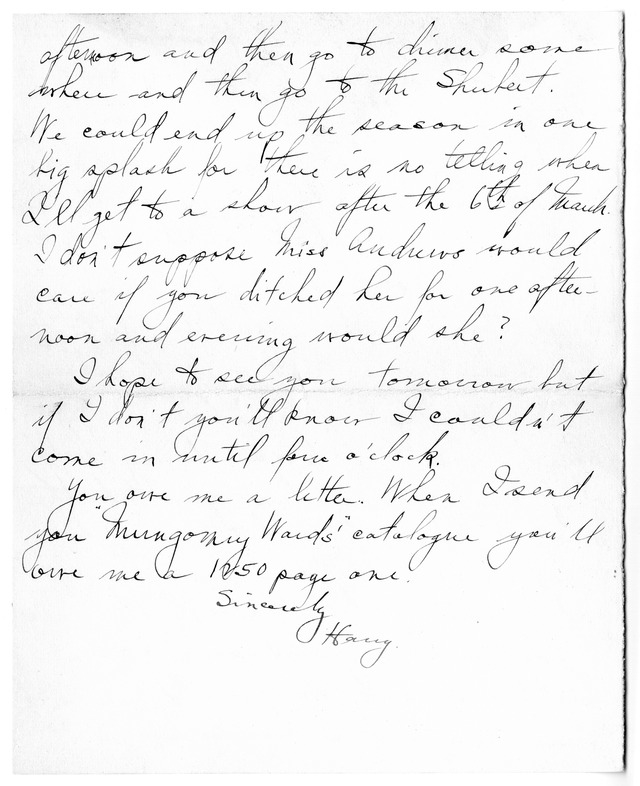 afternoon and then go to dinner some
where and then go to the Shubert.
We could end up the season in one
big splash for there is no telling when
I'll get to a show after the 6th of March.
I don't suppose Miss Andrews would
care if you ditched her for one after-
noon and evening would she?
I hope to see you tomorrow but
if I don't you'll know I couldn't
come in until four o'clock.
You owe me a letter. When I send
you "Mungomry Wards" catalogue you'll
owe me a 1250 page one.
Sincerely
Harry.